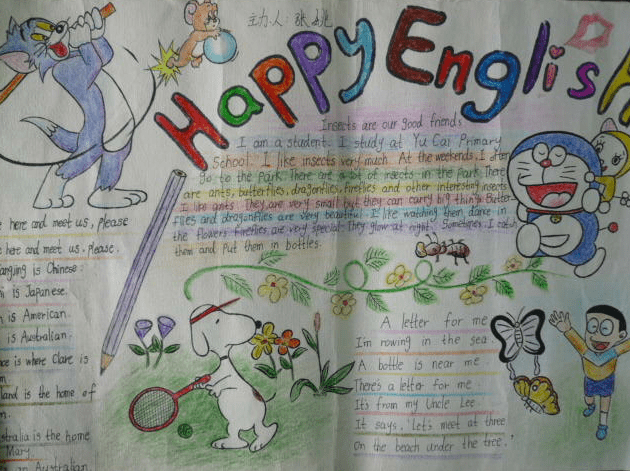 主办人:张
Happy English
Insects are our good friends
I am a student. I study at Yu Cai Primary
School. I like insects very much. At the weekends, I often
go to the park. There are a lot of insects in the park. There
are ants, butterflies, dragonflies, fireflies and other interesting insects.
I like ants. They are very small but they can carry big things. Butter-
flies and dragonflies are very beautiful. I like watching them dance in
the flowers. fireflies are very special. They glow at night. Sometimes I catch
them and put them in bottles.
here and meet us, please
here and meet us, please.
is Chinese.
is Japanese.
is American.
is Australian.
is where Clare is
land is the home of
stralia is the home
Mary.
an Australian.
A letter for me
I'm rowing in the sea.
A bottle is near me
There's a letter for me.
It's from my Uncle Lee.
It says, Let's meet at three
On the beach under the tree.'